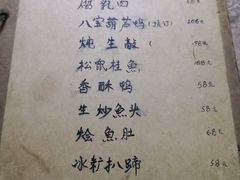 腐乳肉
八宝葫芦鸭（预订） 208元
炖生敲（ 58元
松鼠桂魚
香酥鸭 58元
生炒魚头 58元
烩魚肚 68元
冰籽扒蹄 58元